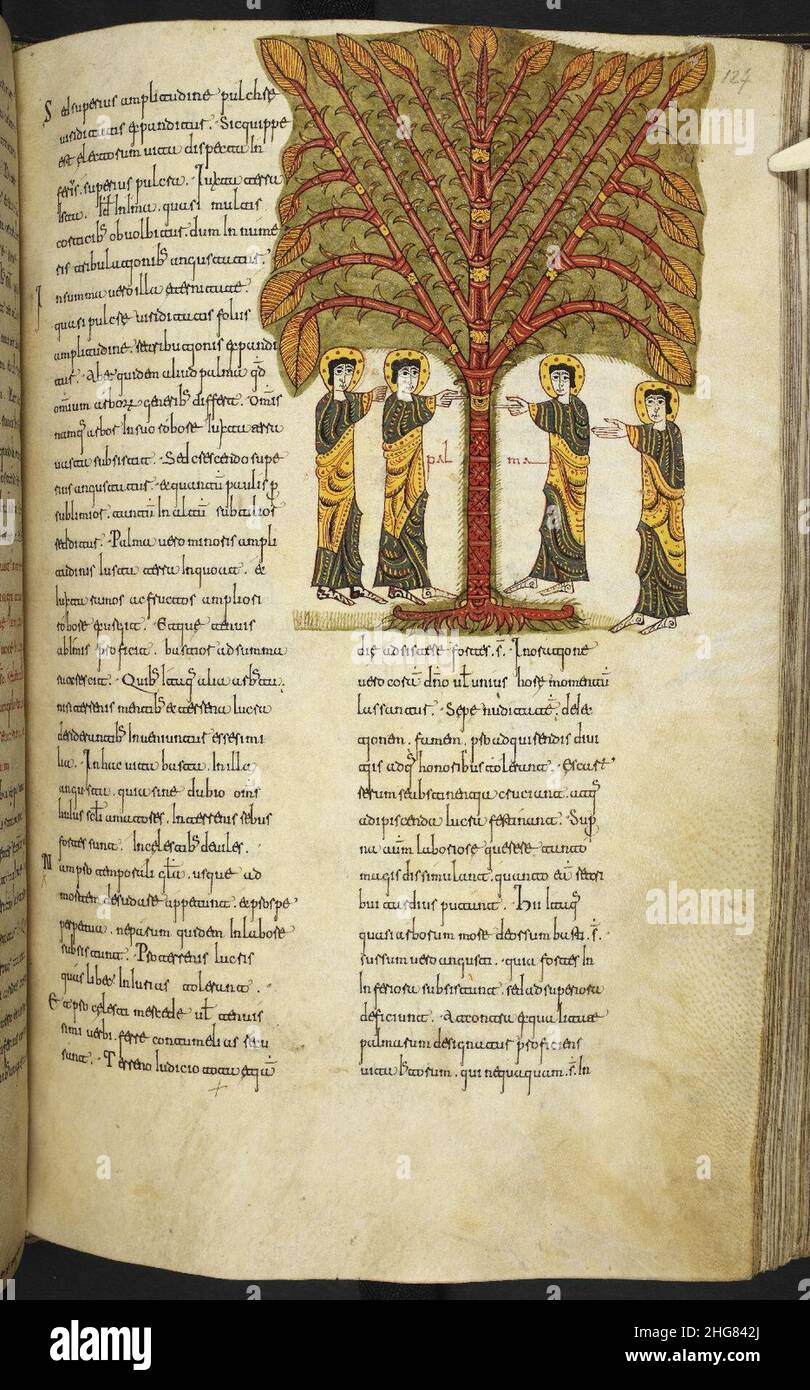 127
Sed superius amplitudine pulchre
viriditatis expanditur. Sic quippe
est electorum vita dispecta in
feris. superius pulcra. Iuxta terra
ista. id In Ima. quasi multis
corticibs obvolbitur. dum In nume
ris tribulationibs angustatur.
In summa vero illa eternitate.
quasi pulcre viriditatis foliis
amplitudine. retributionis expandi
tur. Abet quiddem aliud palma qd
omium arborum generibs differt. Omis
namq arbor In suo robore Iuxta terra
vasta subsistit. Sed crescendo supe
rius angustatur. et quantu paulisp
sublimior. tantu In altu subtilior
redditur. Palma vero minoris ampli
tudinis Iusta terra Inquoat. et
Iuxta ramos ac fructos ampliori
robore exurgit. Et que tenuis
ab Imis proficit. bastior ad summa
succrescit. Quibs Itaq alia arbusta.
nisi terrenis mentibs et terrena lucra
desiderantibs Inveniuntur esse simi
lia. In hac vita basta. In Illa
angusta. quia sine dubio omis
huius scli amatores. In terrenis rebus
fortes sunt. In celestibs deviles.
Nam pro temporali gla. usque ad
mortem desudare appetunt. et pro spe
perpetua. ne parum quidem. In labore
subsistunt. Pro terrenis lucris
quas liber Iniurias tolerant.
Et pro celesti mercede vel tenuis
simi verbi ferre contumelias recu
sant. Terreno Iudicio tota equi
pal
ma
die adsistere fortes. st. In oratione
vero coram dno vel unius hore momentu
lassantur. Sepe nuditate. deie
ctionem. famem. pro adquirendis divi
tiis adq honoribus tolerant. Et cast
rerum se abstinentia cruciant. atq
adipiscenda lucra festinant. Sup
na autem laboriose querere. tanto
magis dissimulant. quanto ea retri
bui tardius putant. Hii Itaq
quasi arborum more deorsum basti. st.
sursum vero angusti. quia fortes In
Inferiora subsistunt. sed ad superiora
deficiunt. At contra ex qualitate
palmarum designatur proficiens
vita Iustorum. qui nequaquam. st. In
alamy
Image ID: 2HG842J
www.alamy.com